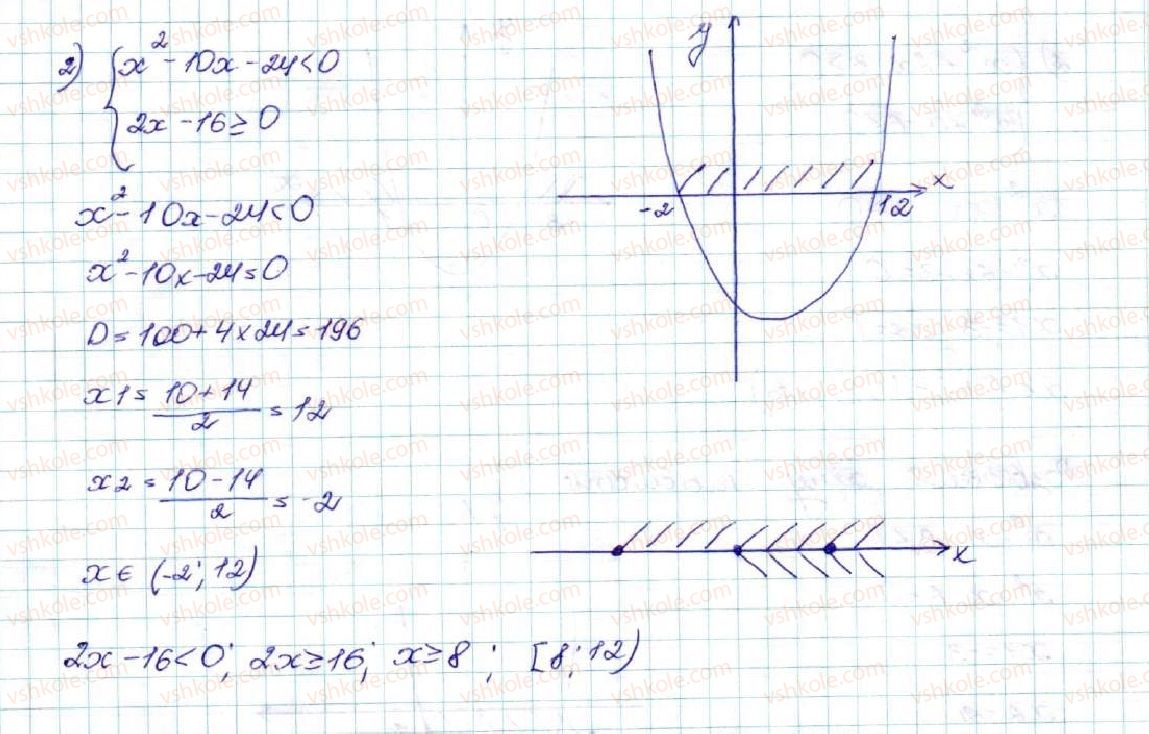 2) { x² - 10x - 24 < 0
2x - 16 ≥ 0
x² - 10x - 24 < 0
x² - 10x - 24 = 0
D = 100 + 4 × 24 = 196
x1 = (10 + 14)/2 = 12
x2 = (10 - 14)/2 = -2
x ∈ (-2; 12)
2x - 16 < 0; 2x ≥ 16; x ≥ 8; [8; 12)
y
x
-2
12
x
vshkole.com